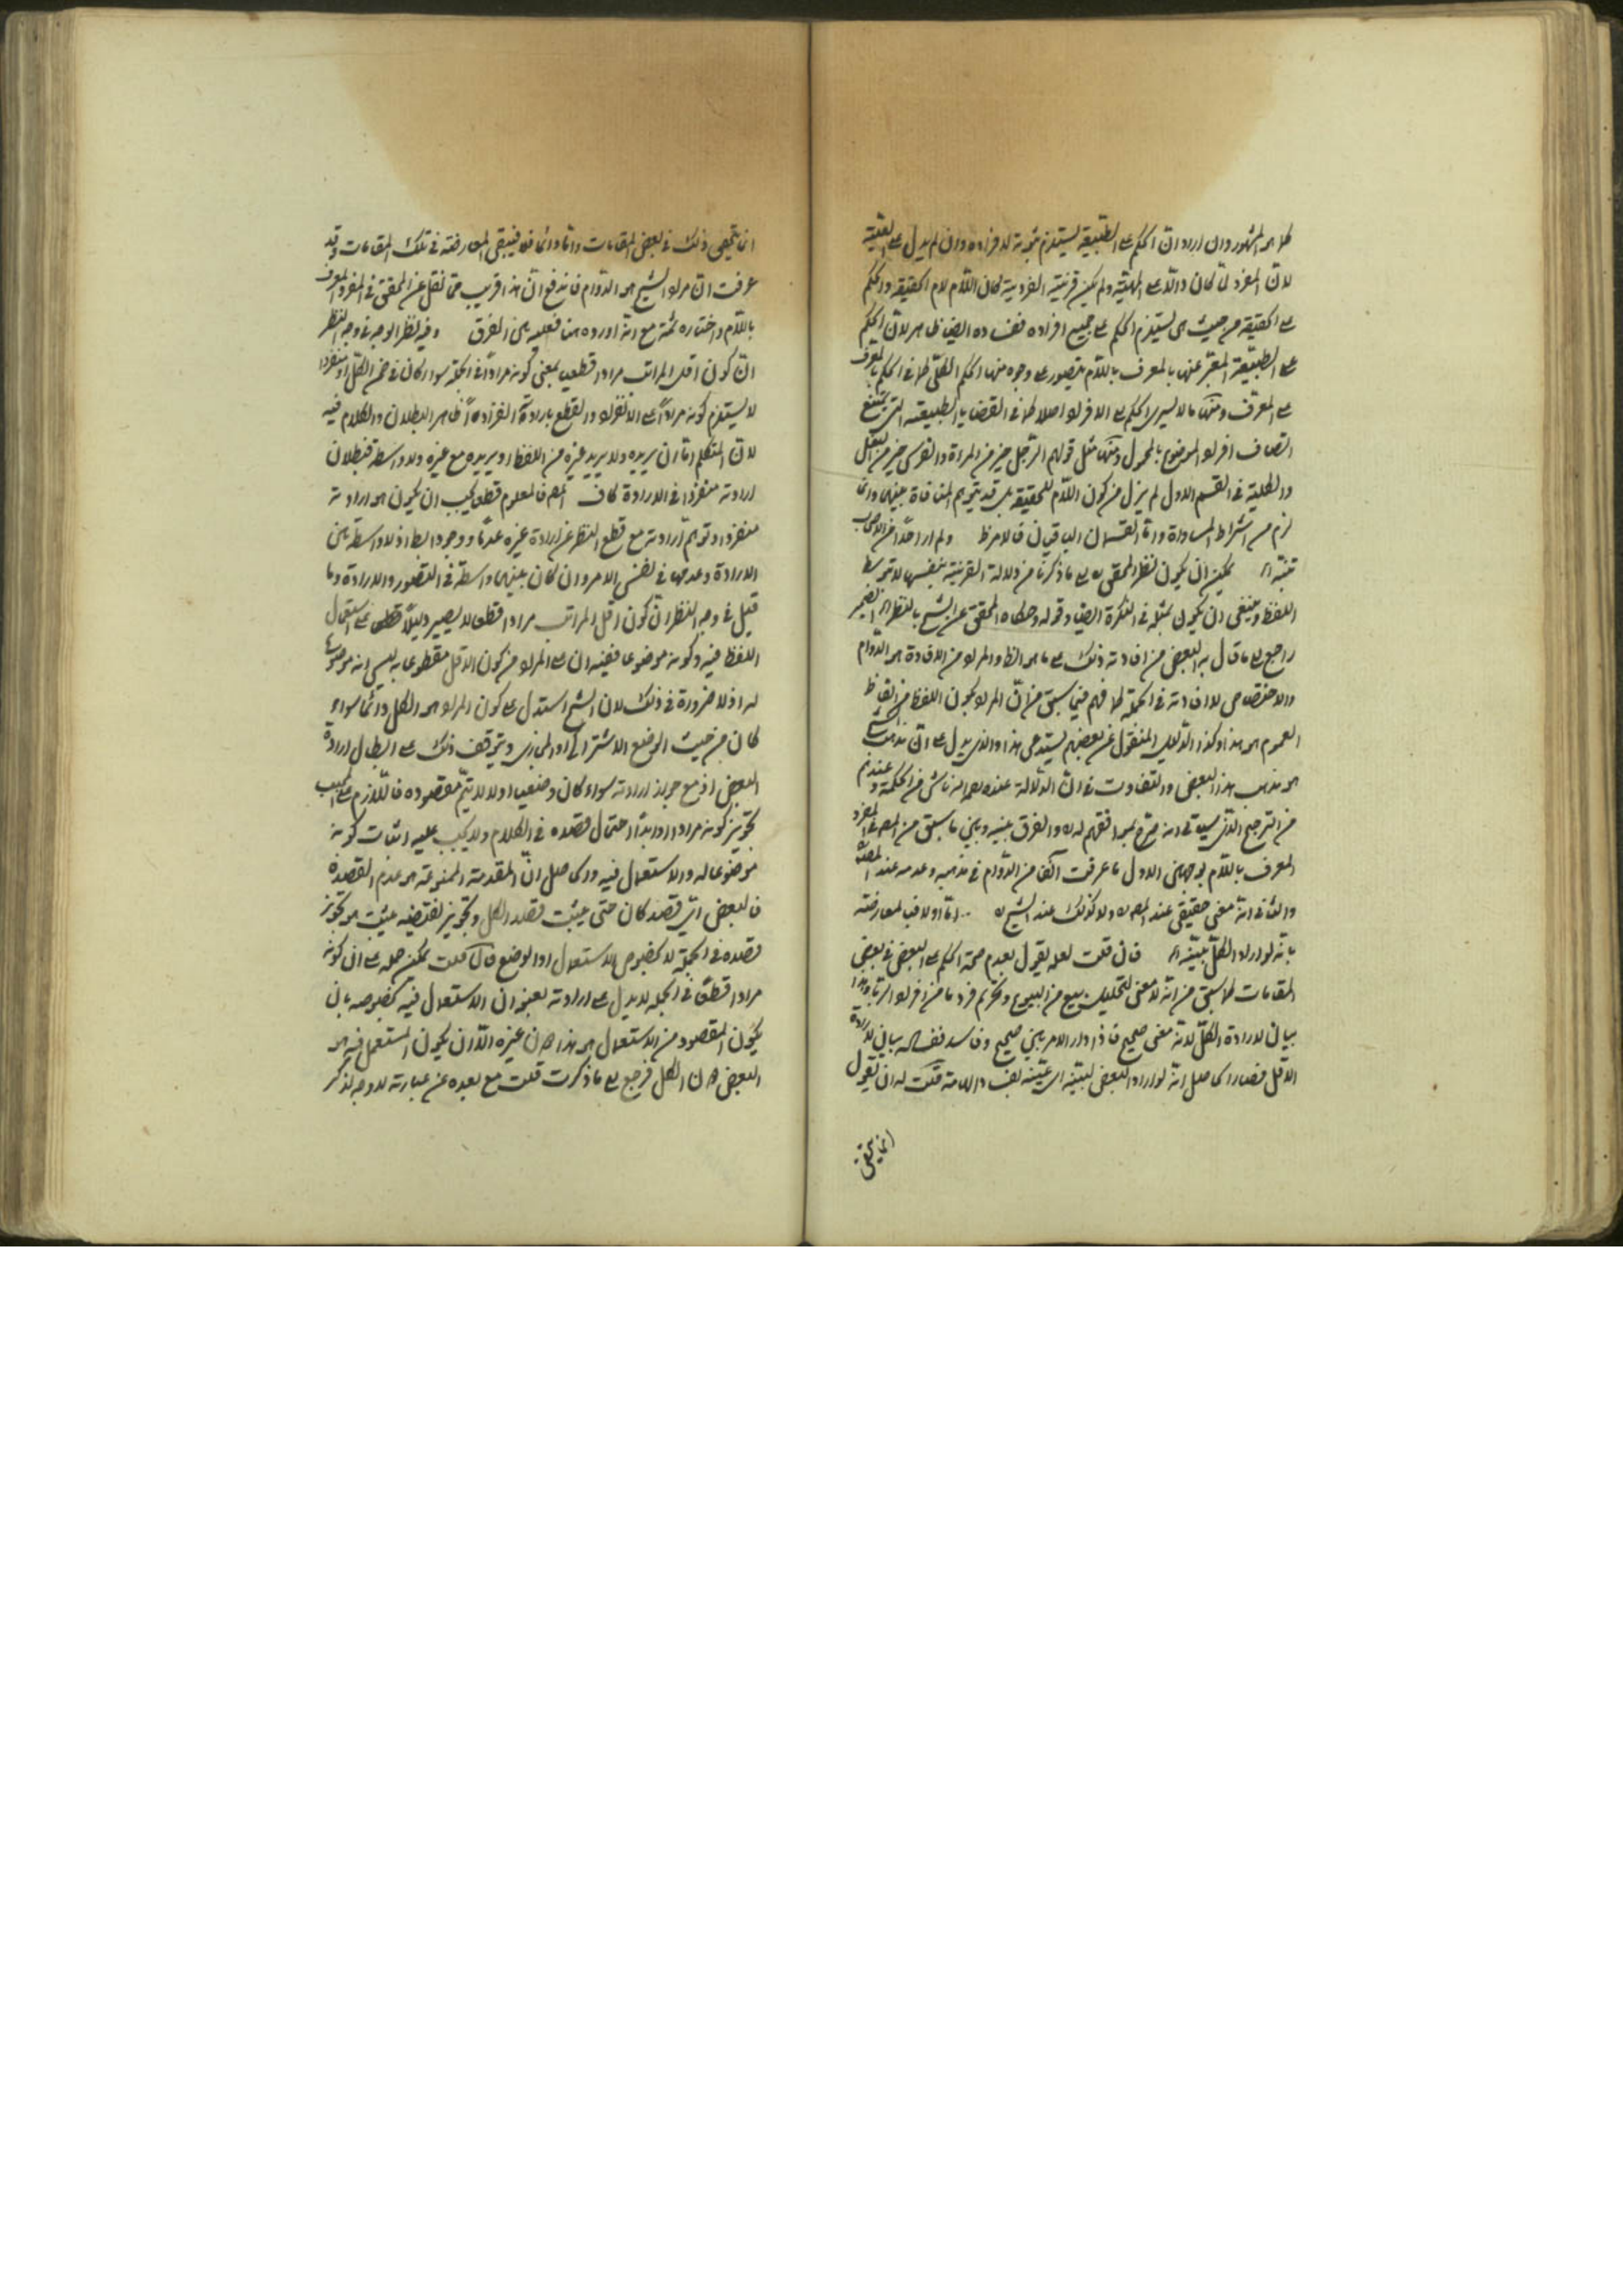 كما هو المشهور وان اراد ان الحكم على الطبيعة يستلزم ثبوته لافراده وان لم يدل على
لان المفرد لما كان دالا على المهية ولم يكن قرينة الفردية كان اللام لام الحقيقة والحكم
على الحقيقة من حيث هي يستلزم الحكم على جميع افراده ففساده ايضا ظاهر لان الحكم
على الطبيعة المعبر عنها بالمعرف باللام يتصور على وجوه منها الحكم الكلي كما في الحكم بالمعرف
على المعرف ومنها ما لا يسري الحكم على الافراد اصلا كما في القضايا الطبيعية التي يمتنع
اتصاف افراد الموضوع بالمحمول ومنها مثل قولهم الرجل خير من المراة والفرس خير من البغل
والكلية في القسم الاول لم يزل من كون اللام للحقيقة بل قد يتوهم المنافاة بينهما وانما
لزم من اشتراط المساواة واما القسمان الباقيان فالامر ظ ولم ار احدا من الاصحاب
تنبه اه يمكن ان يكون نظر المحقق ره الى ما ذكرنا من دلالة القرينة بنفسها لا بتوسط
اللفظ وينبغي ان يكون بمثله في النكرة ايضا وقوله وحكاه المحقق عن الشيخ بالنظر اه الضمير
راجع الى ما قال به البعض من افادته ذلك على ما هو الظ والمراد من الافادة هو الدوام
والاختصاص لا افادته في الجملة كما فهم فيما سبق من ان المراد بكون اللفظ من الفاظ
العموم هو هذا وكذا الدليل المنقول عن بعضهم يستدعي هذا والذي يدل على ان مذهب الشيخ
هو مذهب هذا البعض والتفاوت في ان الدلالة عنده ناش من الحكمة وعندهم
من الترجيح الذي سياتي انه صرح بموافقتهم له ره والفرق بينه وبين ما سبق من المص في المفرد
المعرف باللام بوجهين الاول ما عرفت آنفا من الدوام في مذهبه وعدمه عند المص
والثاني انه معنى حقيقي عند المص ره ولا كذلك عند الشيخ ره اما اولا فبالمعارضة
بانه لو اراد الكل لبينه اه فان قلت لعله يقول بعدم صحة الحكم على البعض في بعض
المقامات لما سبق من انه لا معنى لتحليل بيع من البيوع وتحريم فرد ما من افراد الربا وهذا
بيان لارادة الكل لانه معنى صحيح فاذا دار الامر بين صحيح وفاسد ففساده بيان لارادة
الاقل فصار الحاصل انه لو اراد البعض لبينه اي عينه قلت له ان يقول
انما يتمشى
انما يتمشى ذلك في بعض المقامات واما دائما فلا فيبقى المعارضة في تلك المقامات وقد
عرفت ان مراد الشيخ هو الدوام فاندفع ان هذا قريب مما نقل عن المحقق في المفرد المعرف
باللام واختاره ثمة مع انه اورده هنا فعليه بيان الفرق وفيه نظر الوجه في وجه النظر
ان كون اقل المراتب مرادا قطعيا بمعنى كونه مرادا في الجملة سواء كان في ضمن الكل او منفردا
لا يستلزم كونه مرادا على الانفراد والقطع بارادته انفرادا ظاهر البطلان والكلام فيه
لان المتكلم اما ان يريده ولا يريد غيره من اللفظ او يريده مع غيره ولا واسطة فبطلان
ارادته منفردا في الارادة كاف المص فالمعلوم قطعا يجب ان يكون هو ارادته
منفردا وتوهم ارادته مع قطع النظر عن ارادة غيره عدما ووجودا باطل اذ لا واسطة بين
الارادة وعدمها في نفس الامر وان كان بينهما واسطة في التصور والارادة وما
قيل في وجه النظر ان كون اقل المراتب مرادا قطعا لا يصير دليلا قطعيا على استعمال
اللفظ فيه وكونه موضوعا ففيه ان على المراد من كون الاقل مقطوعا به ليس انه موضوعا
له اذ لا ضرورة في ذلك لان الشيخ استدل على كون المراد هو الكل دائما سواء
كان من حيث الوضع الاشتراكي او المجازي ويتوقف ذلك على ابطال ارادة
البعض اذ مع جواز ارادته سواء كان وضعيا او لا لا يتم مقصوده فاللازم على المجيب
تجويز كونه مرادا وابداء احتمال قصده في الكلام ولا يجب عليه اثبات كونه
موضوعا له والاستعمال فيه والحاصل ان المقدمة الممنوعة هو عدم القصد
فالبعض اي قصد كان حتى يثبت قصد الكل وتجويز نقيضه يثبت هو تجويز
قصده في الجملة لا بخصوص الاستعمال او الوضع فان قلت يمكن حمله على ان كونه
مرادا قطعا في الجملة لا يدل على ارادته بعنوان الاستعمال فيه بخصوصه بان
يكون المقصود من الاستعمال هو هذا دون غيره الا ان يكون المستعمل فيه هو
البعض دون الكل فرجع الى ما ذكرت قلت مع بعده عن عبارته لا وجه لذكر